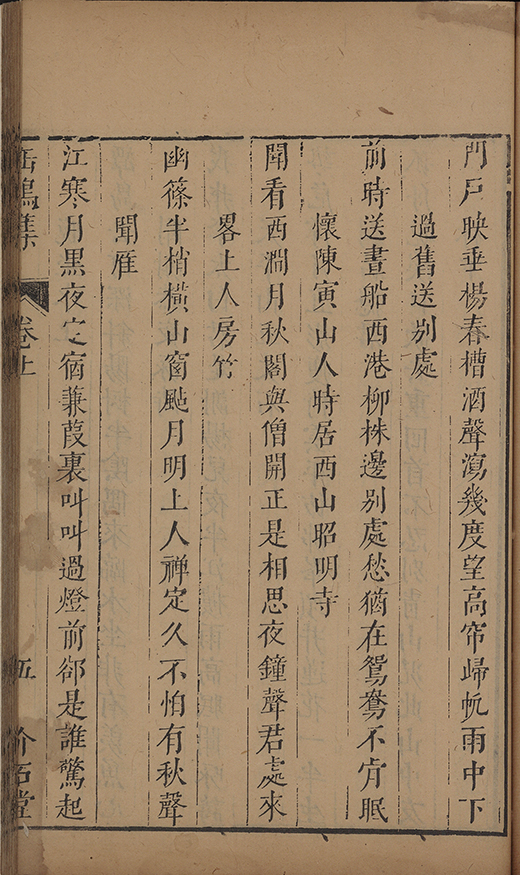 門戶映垂楊春槽酒聲瀉幾度望高帘歸帆雨中下
過舊送別處
前時送畫船西港柳株邊別處愁猶在鴛鴦不肯眠
懷陳寅山人時居西山昭明寺
閒看西澗月秋閣與僧開正是相思夜鐘聲君處來
畧上人房竹
幽篠半梢橫山窗颭月明上人禪定久不怕有秋聲
聞雁
江寒月黑夜定宿蒹葭裏叫叫過燈前郤是誰驚起
集
卷上
伍
介石堂